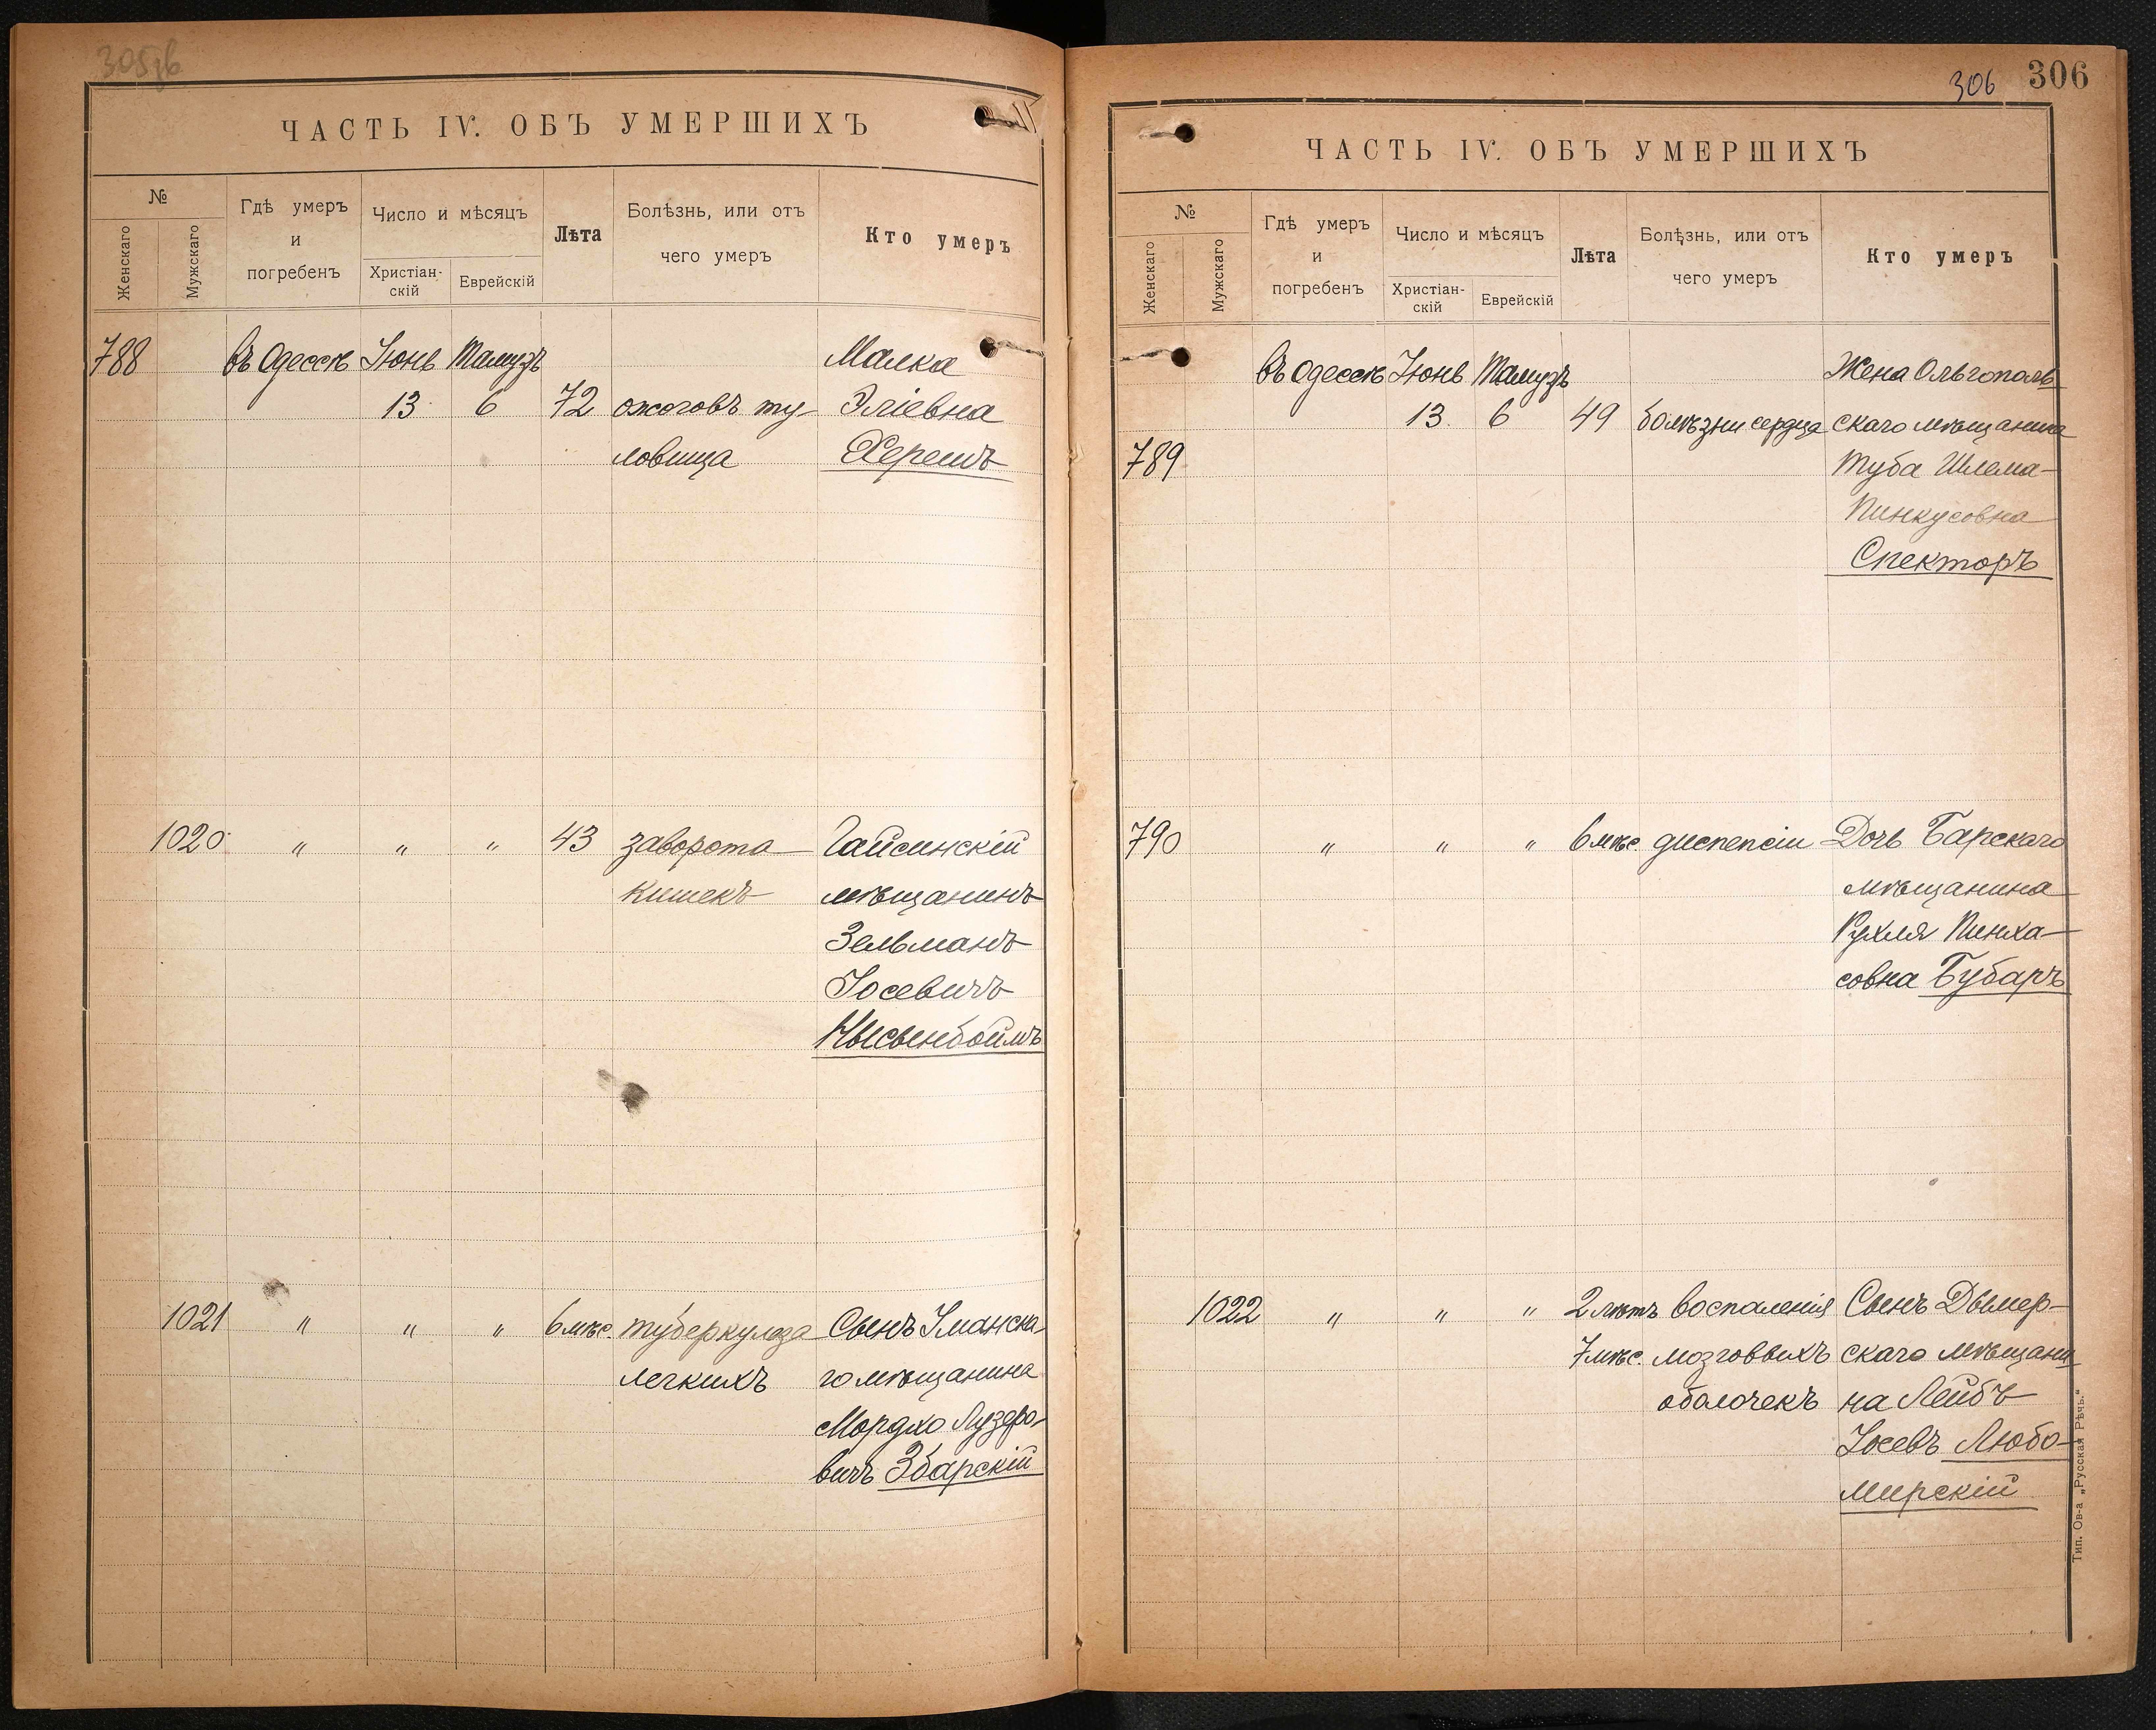 ЧАСТЬ IV. ОБЪ УМЕРШИХЪ
№
Женскаго
Мужскаго
Гдѣ умеръ
и
погребенъ
Число и мѣсяцъ
Христіан-
скій
Еврейскій
Лѣта
Болѣзнь, или отъ
чего умеръ
Кто умеръ
788 въ Одессѣ Іюнь Тамузъ Малка
13 6 72 ожоговъ ту- Эліевна
ловища Херешъ
1020 " " " 43 заворота Гайсинскій
кишекъ мѣщанинъ
Зельманъ
Іосевичъ
Нысынбоймъ
1021 " " " 6 мѣс. туберкулеза Сынъ Уманска-
легкихъ го мѣщанина
Мордко Лузеро-
вичъ Збарскій
306 306
ЧАСТЬ IV. ОБЪ УМЕРШИХЪ
№
Женскаго
Мужскаго
Гдѣ умеръ
и
погребенъ
Число и мѣсяцъ
Христіан-
скій
Еврейскій
Лѣта
Болѣзнь, или отъ
чего умеръ
Кто умеръ
въ Одессѣ Іюнь Тамузъ Жена Ольгополь-
13 6 49 болѣзни сердца скаго мѣщанина
789 Туба Шлема-
Пинкусовна
Спекторъ
790 " " " 6 мѣс. диспепсіи Дочь Барскаго
мѣщанина
Рухля Пинха-
совна Бубаръ
1022 " " " 2 лѣтъ воспаленія Сынъ Дымер-
7 мѣс. мозговыхъ скаго мѣщани
оболочекъ на Лейбъ
Іосевъ Любо-
мирскій
Тип. Ов-а „Русская Рѣчь."